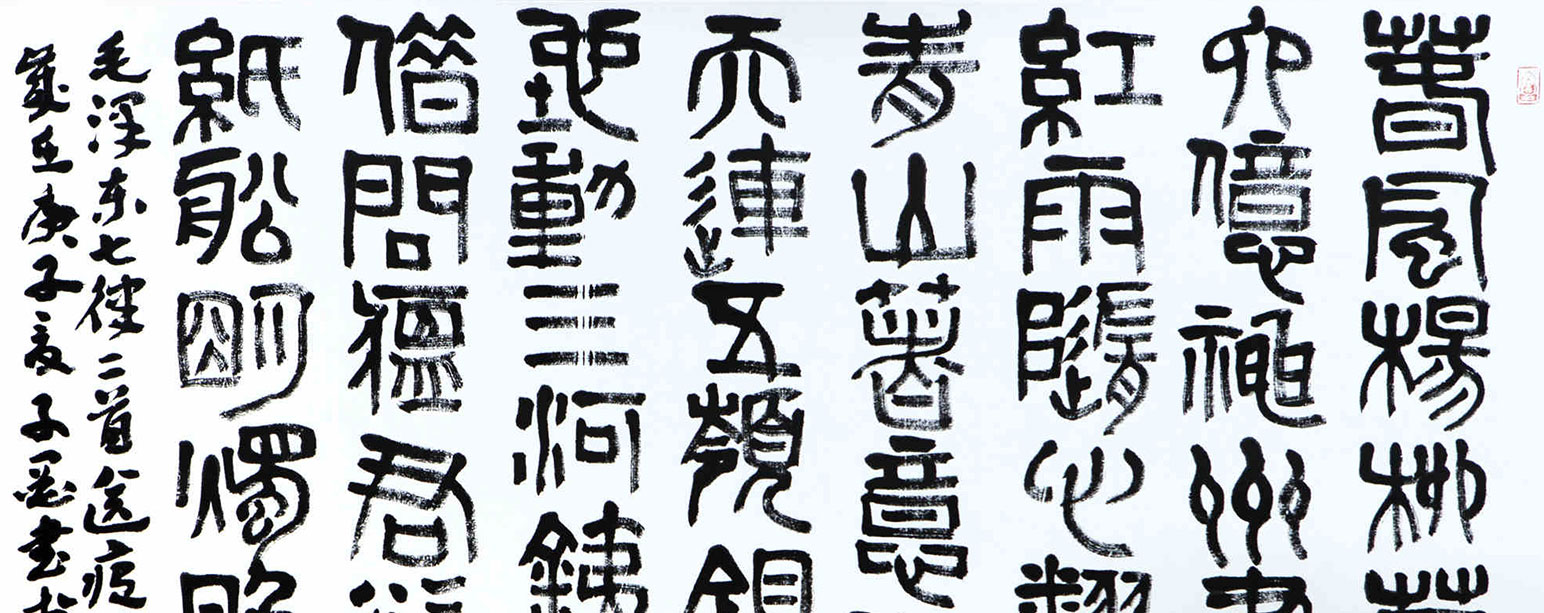 春風楊柳
六億神州
紅雨隨心
青山著意
天連五嶺銀
地動三河銕
借問瘟君
紙船明燭照
毛泽东七律二首送
歲在庚子夏子墨書